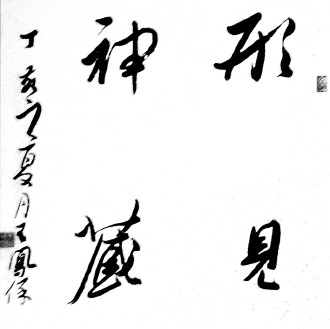 形見
神藏
丁亥之夏月王鳳保